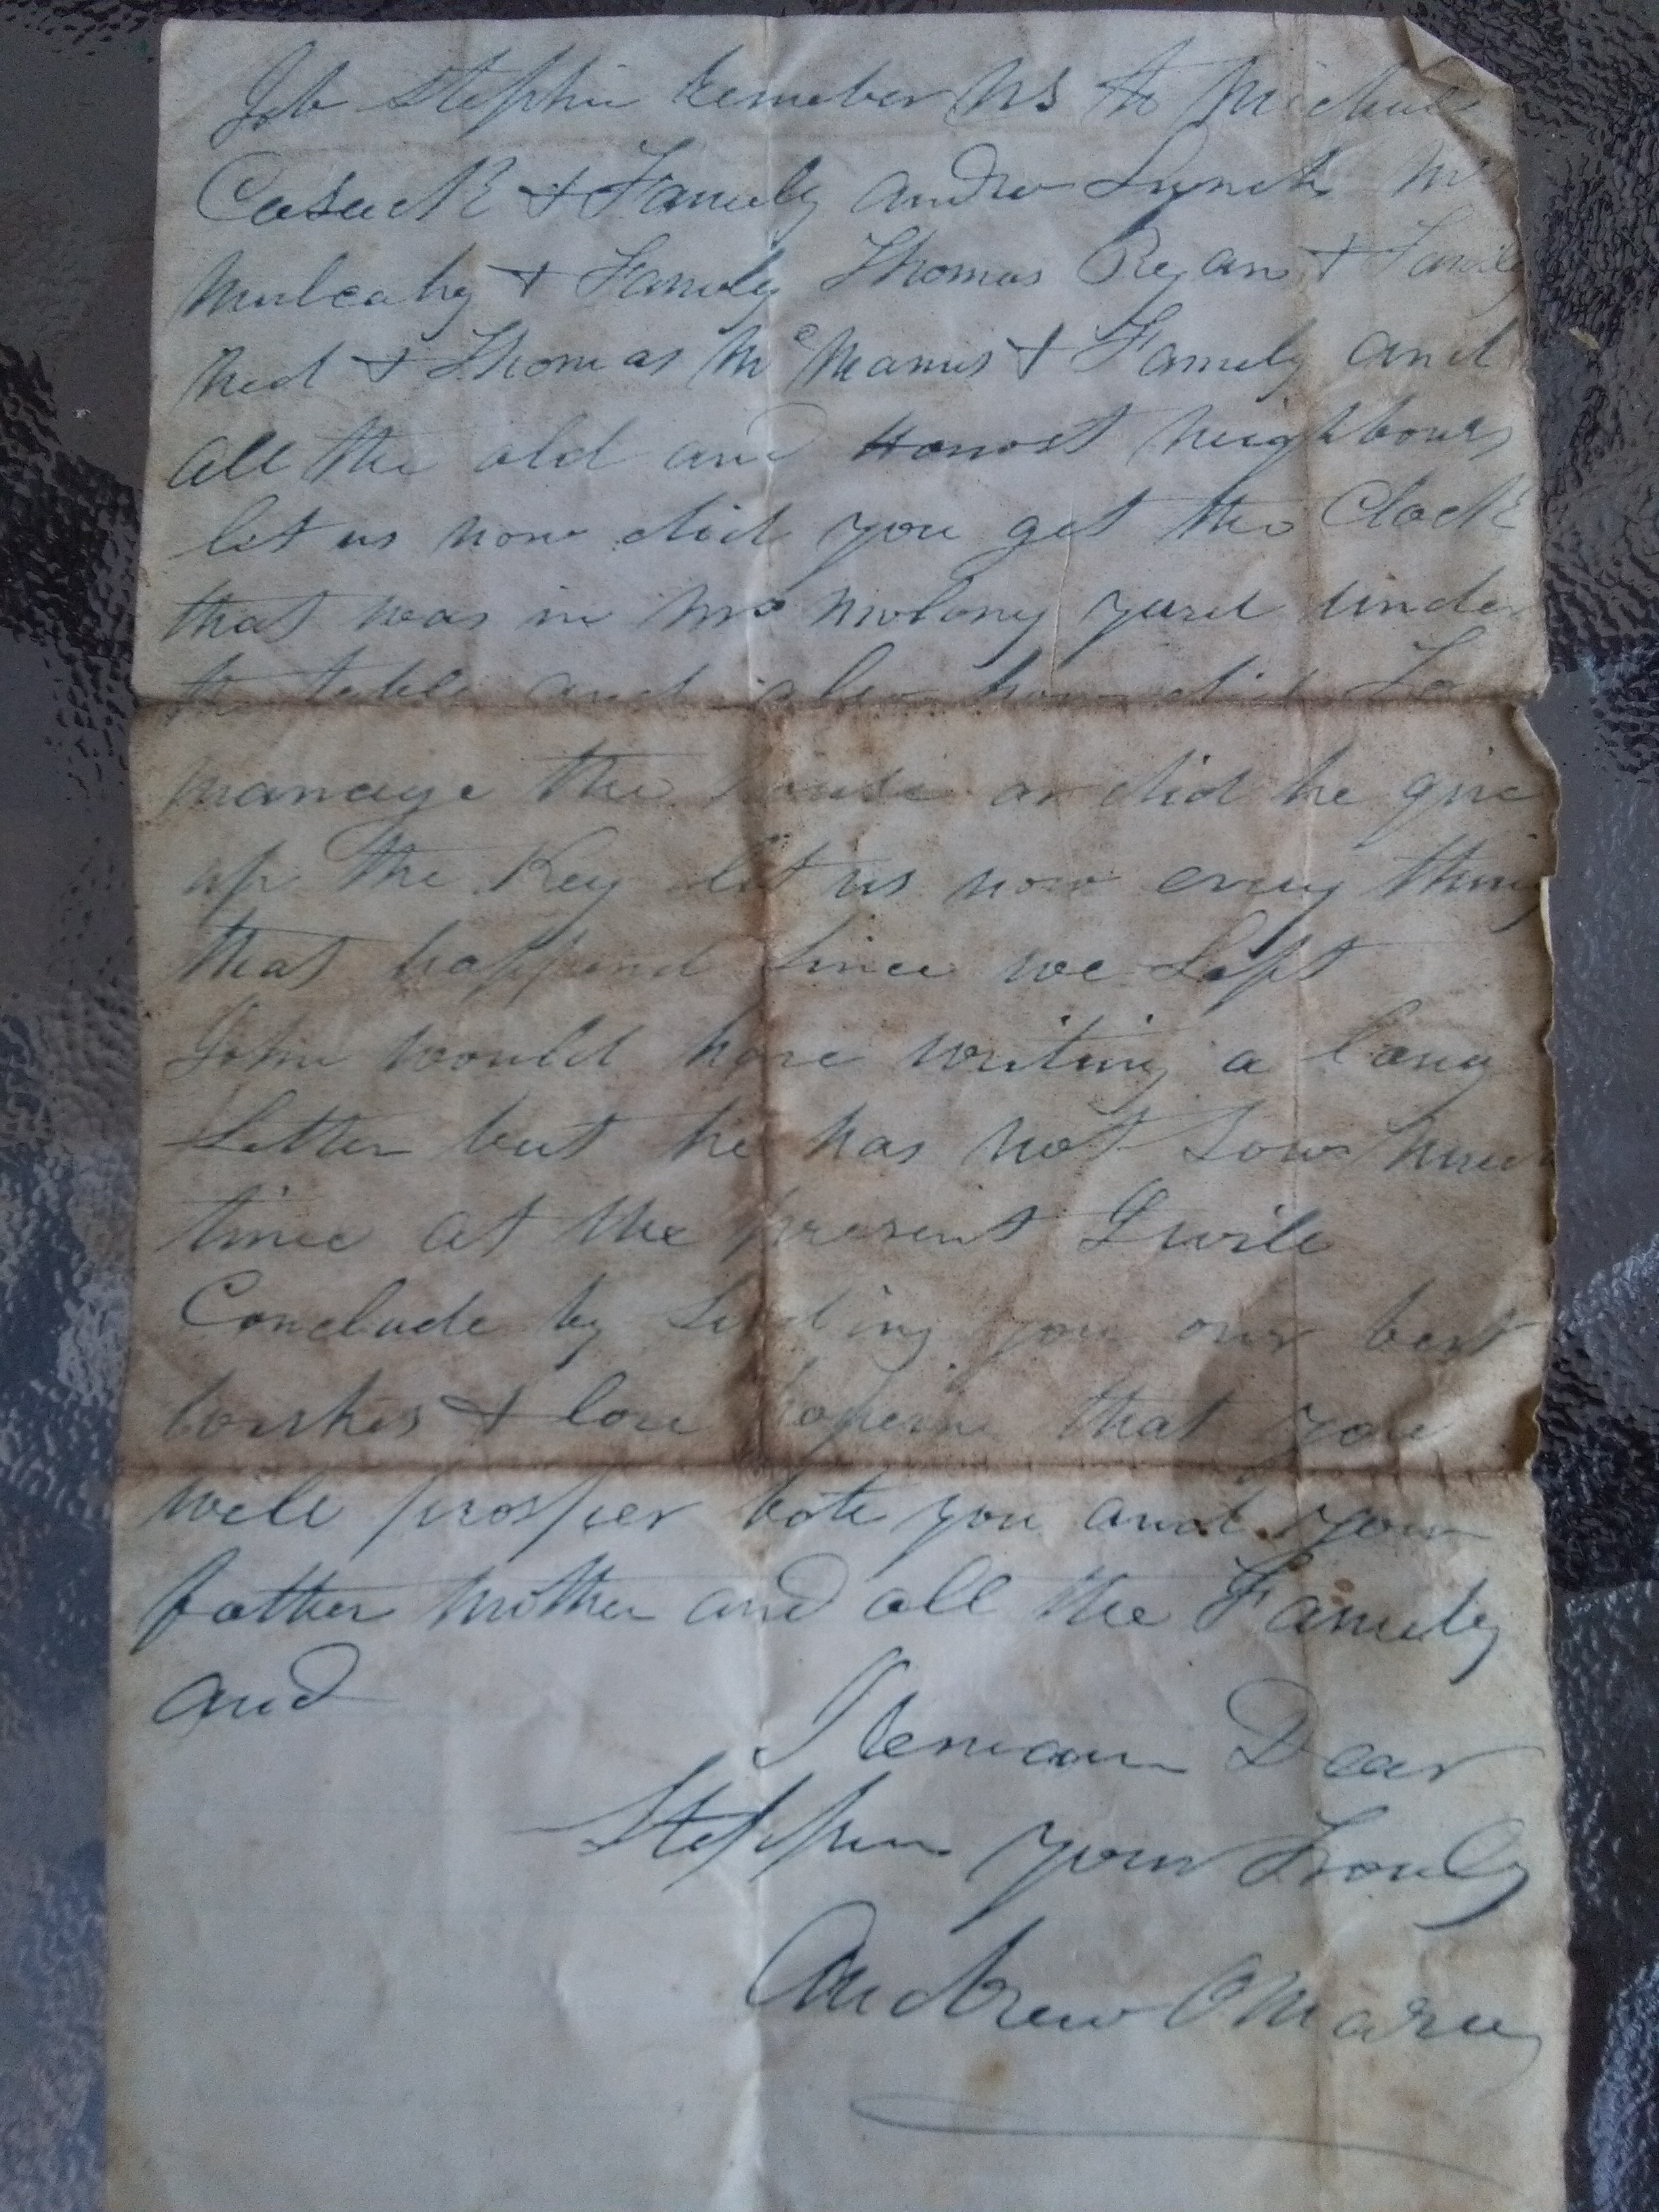 Job Stephin remeber us to Micheal
Cusack + Family Andrw Lynch Mr
Mulcahy + Family Thomas Ryan + Family
Ned + Thomas McManus + Family and
all the old and Honost neighbours
let us now did you get the Clock
that was in Mrs Molony yard under
the table and also how did
manage the house or did he give
up the Key let us now every thing
that happend since we Left
John would have writing a long
Letter but he has not
time at the present I will
Conclude by Sending you our best
wishes + love hopein that you
will prosper bote you and your
father mother and all the Family
and
I Remain Dear
Stephin your Trouly
Andrew OMara